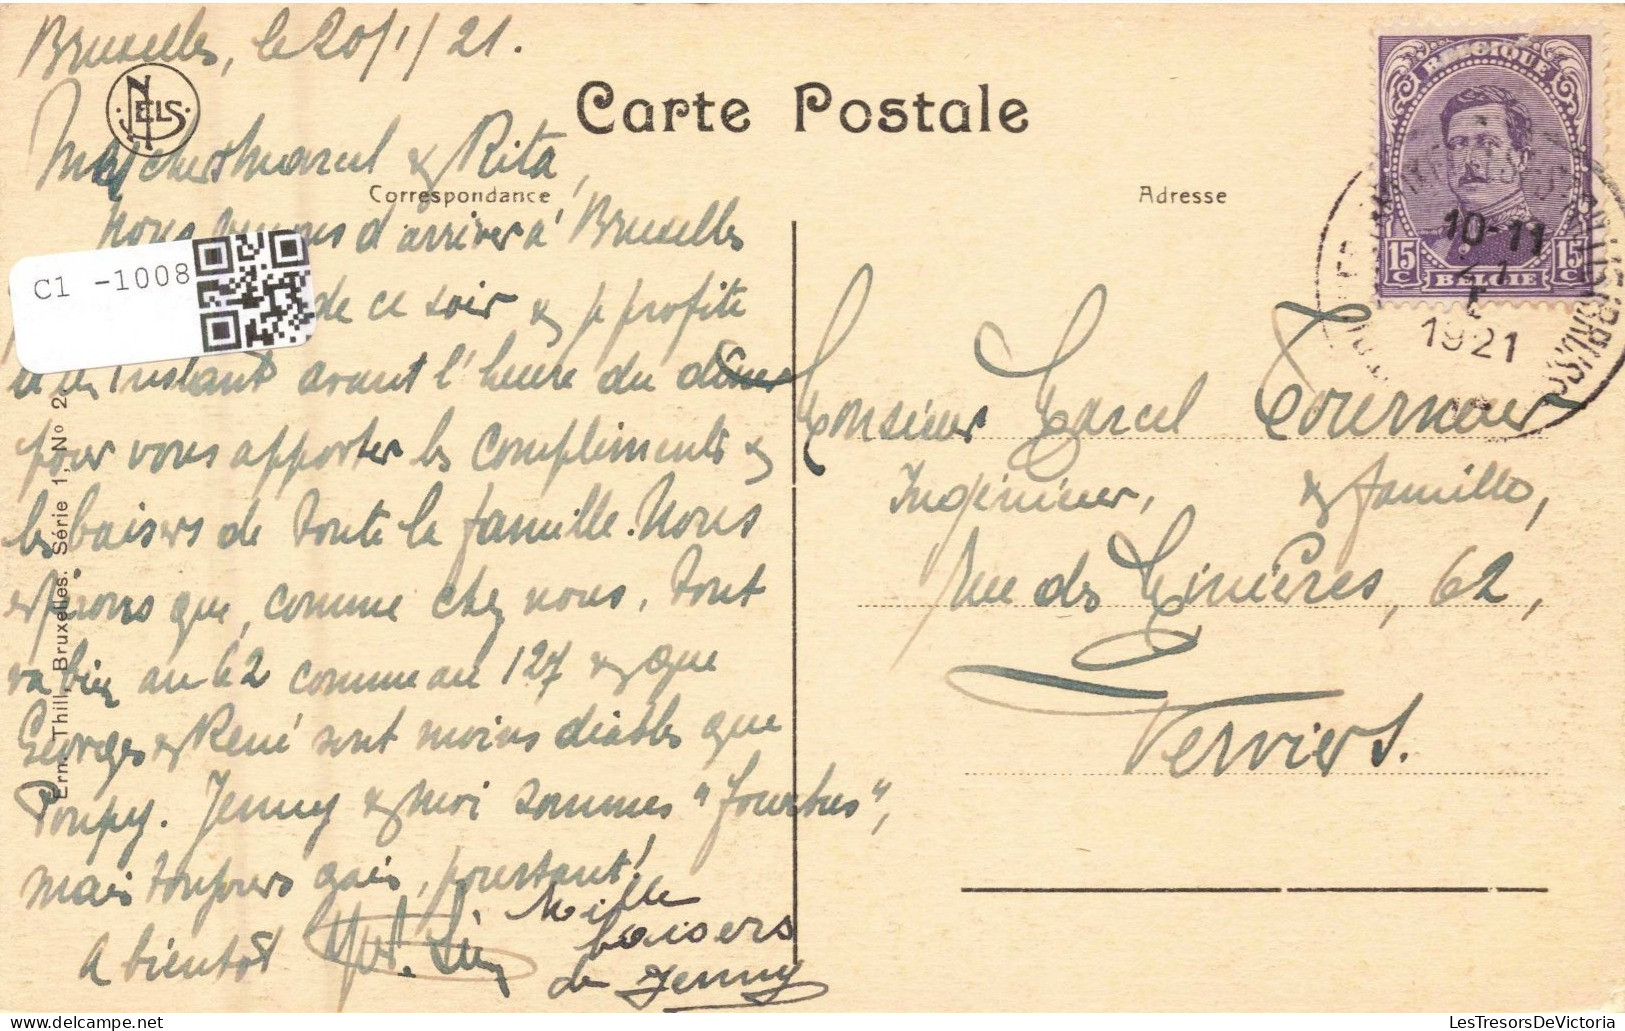 Bruxelles, le 20/1/21.
NELS
Carte Postale
Mes chers Marcel & Rita,
Correspondance
Adresse
BELGIQUE
15 C
15 C
BELGIË
10-11
21
I
1921
Nous d'arriver à Bruxelles
C1 -1008
de ce soir & je profite
d'un instant avant l'heure du dîner
pour vous apporter les compliments &
les baisers de toute la famille. Nous
espérons que, comme chez nous, tout
va bien au 62 comme au 127 & que
Georges & René sont moins diables que
Poupy. Jenny & moi sommes "fourbus",
mais toujours gais, pourtant!
A bientôt
Mille
baisers
de Jenny
Monsieur Marcel Tourneur
Ingénieur, & famille,
Rue des Minières, 62,
Verviers.
Ern. Thill, Bruxelles. Série 1, No 2
LesTresorsDeVictoria
www.delcampe.net